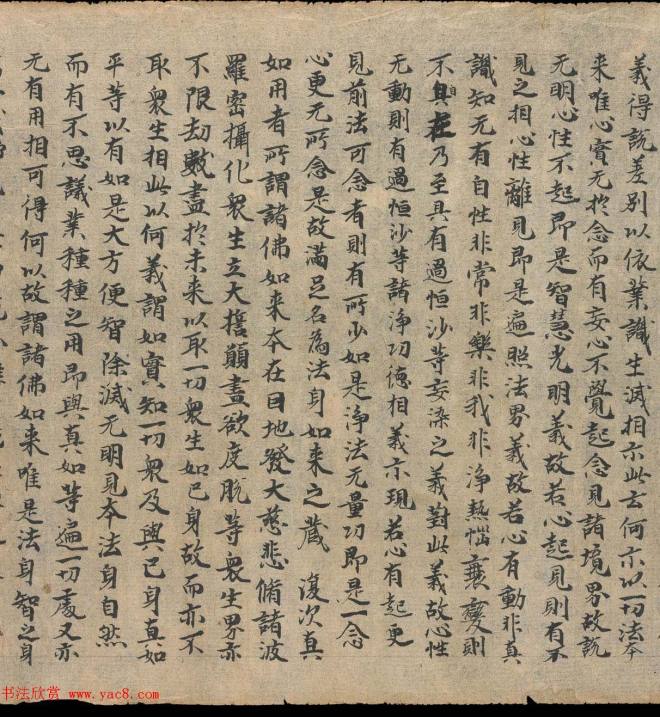 義得說差別以依業識生滅相示此云何示以一切法本
来唯心實无於念而有妄心不覺起念見諸境界故說
无明心性不起即是智慧光明義故若心起見則有不
見之相心性離見即是遍照法界義故若心有動非真
識知无有自性非常非樂非我非淨熱惱衰變則
不自在乃至具有過恒沙等妄染之義對此義故心性
无動則有過恒沙等諸淨功德相義示現若心有起更
見前法可念者則有所少如是淨法无量功即是一念
心更无所念是故滿足名為法身如来之藏 復次真
如用者所謂諸佛如来本在因地發大慈悲脩諸波
羅密攝化衆生立大誓願盡欲度脫等衆生界亦
不限劫數盡於未来以取一切衆生如已身故而亦不
取衆生相此以何義謂如實知一切衆及與已身真如
平等以有如是大方便智除滅无明見本法身自然
而有不思議業種種之用即與真如等遍一切處又亦
无有用相可得何以故謂諸佛如来唯是法身智之身
书法欣赏 www.yac8.com